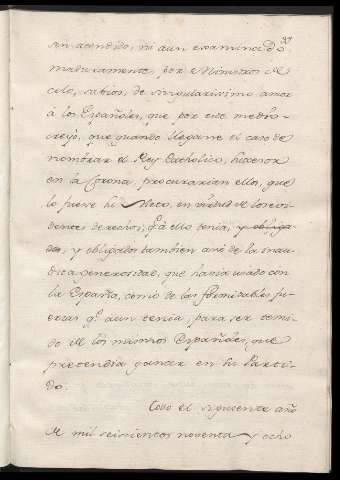 37
sin atendido, ni aun examinado
maduramente, por Ministros de
celo, sabios, de singularissimo amor
à los Españoles, que por este medio
creyò, que quando llegasse el caso de
nombrar el Rey Catholico, succesor
en la Corona, procurarian ellos, que
lo fuese su Nieto, en virtud de los evi-
dentes derechos, qe à ello tenia, y obliga-
dos, y obligados tambien aun de la inau-
dita generosidad, que havia usado con
la España, como de las formidables fu-
erzas qe aun tenia, para ser temi-
do de los mismos Españoles, que
pretendia ganar en su Parti-
do.
Todo el siguiente año
de mil seiscientos noventa y ocho